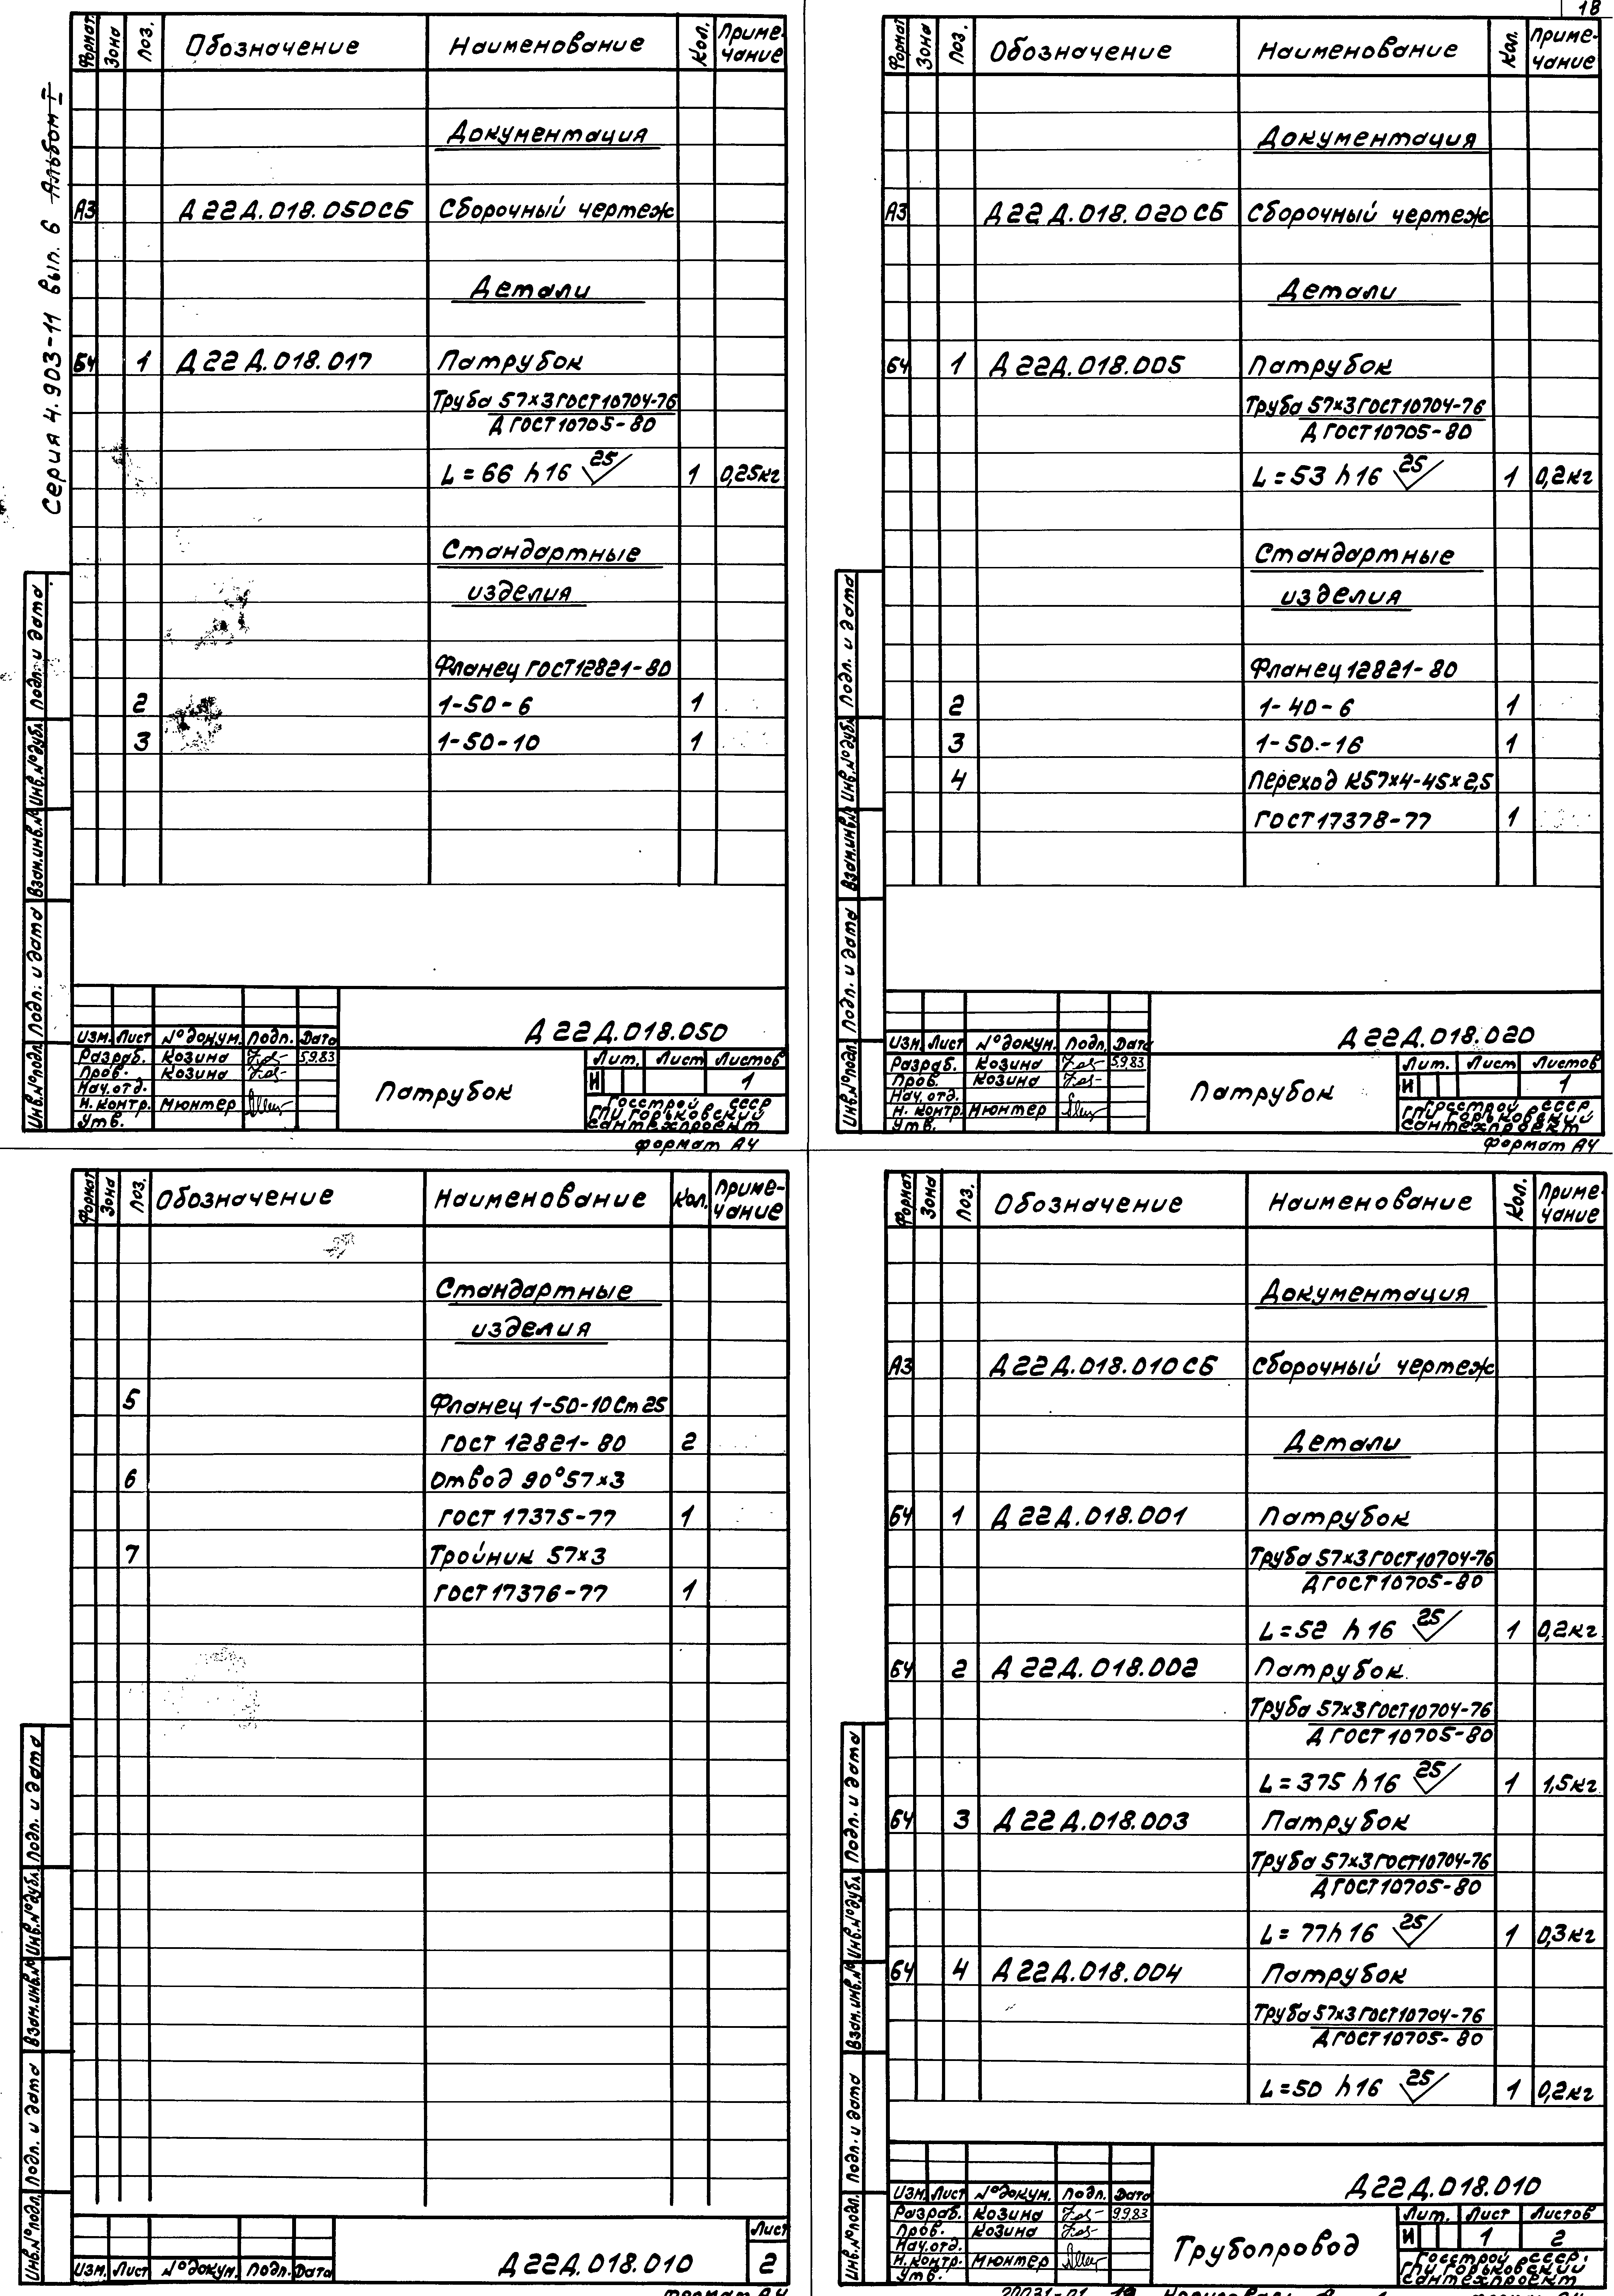 18
Серия 4.903-11 вып. 6 Альбом I
Формат Зона Поз. Обозначение Наименование Кол. Приме-
чание
Документация
А3 Д22Д.018.050СБ Сборочный чертеж
Детали
БЧ 1 Д22Д.018.017 Патрубок
Труба 57×3 ГОСТ 10704-76
Д ГОСТ 10705-80
L=66 h16 25 1 0,25кг
Стандартные
изделия
Фланец ГОСТ 12821-80
2 1-50-6 1
3 1-50-10 1
Инв.№подл. Подп. и дата Взам.инв.№ Инв.№дубл. Подп. и дата
Д22Д.018.050
Изм. Лист №докум. Подп. Дата
Разраб. Козина 5.9.83
Пров. Козина
Нач.отд.
Н.контр. Мюнтер
Утв.
Патрубок
Лит. Лист Листов
И 1
Госстрой СССР
ГПИ Горьковский
Сантехпроект
Формат А4
Формат Зона Поз. Обозначение Наименование Кол. Приме-
чание
Документация
А3 Д22Д.018.020СБ Сборочный чертеж
Детали
БЧ 1 Д22Д.018.005 Патрубок
Труба 57×3 ГОСТ 10704-76
Д ГОСТ 10705-80
L=53 h16 25 1 0,2кг
Стандартные
изделия
Фланец 12821-80
2 1-40-6 1
3 1-50-16 1
4 Переход К57×4-45×2,5
ГОСТ 17378-77 1
Инв.№подл. Подп. и дата Взам.инв.№ Инв.№дубл. Подп. и дата
Д22Д.018.020
Изм. Лист №докум. Подп. Дата
Разраб. Козина 5.9.83
Пров. Козина
Нач.отд.
Н.контр. Мюнтер
Утв.
Патрубок
Лит. Лист Листов
И 1
Госстрой СССР
ГПИ Горьковский
Сантехпроект
Формат А4
Формат Зона Поз. Обозначение Наименование Кол. Приме-
чание
Стандартные
изделия
5 Фланец 1-50-10 Ст25
ГОСТ 12821-80 2
6 Отвод 90°57×3
ГОСТ 17375-77 1
7 Тройник 57×3
ГОСТ 17376-77 1
Инв.№подл. Подп. и дата Взам.инв.№ Инв.№дубл. Подп. и дата
Изм. Лист №докум. Подп. Дата
Д22Д.018.010
Лист
2
Формат А4
Формат Зона Поз. Обозначение Наименование Кол. Приме-
чание
Документация
А3 Д22Д.018.010СБ Сборочный чертеж
Детали
БЧ 1 Д22Д.018.001 Патрубок
Труба 57×3 ГОСТ 10704-76
Д ГОСТ 10705-80
L=52 h16 25 1 0,2кг
БЧ 2 Д22Д.018.002 Патрубок
Труба 57×3 ГОСТ 10704-76
Д ГОСТ 10705-80
L=375 h16 25 1 1,5кг
БЧ 3 Д22Д.018.003 Патрубок
Труба 57×3 ГОСТ 10704-76
Д ГОСТ 10705-80
L=77h16 25 1 0,3кг
БЧ 4 Д22Д.018.004 Патрубок
Труба 57×3 ГОСТ 10704-76
Д ГОСТ 10705-80
L=50 h16 25 1 0,2кг
Инв.№подл. Подп. и дата Взам.инв.№ Инв.№дубл. Подп. и дата
Д22Д.018.010
Изм. Лист №докум. Подп. Дата
Разраб. Козина 9.9.83
Пров. Козина
Нач.отд.
Н.контр. Мюнтер
Утв.
Трубопровод
Лит. Лист Листов
И 1 2
Госстрой СССР
ГПИ Горьковский
Сантехпроект